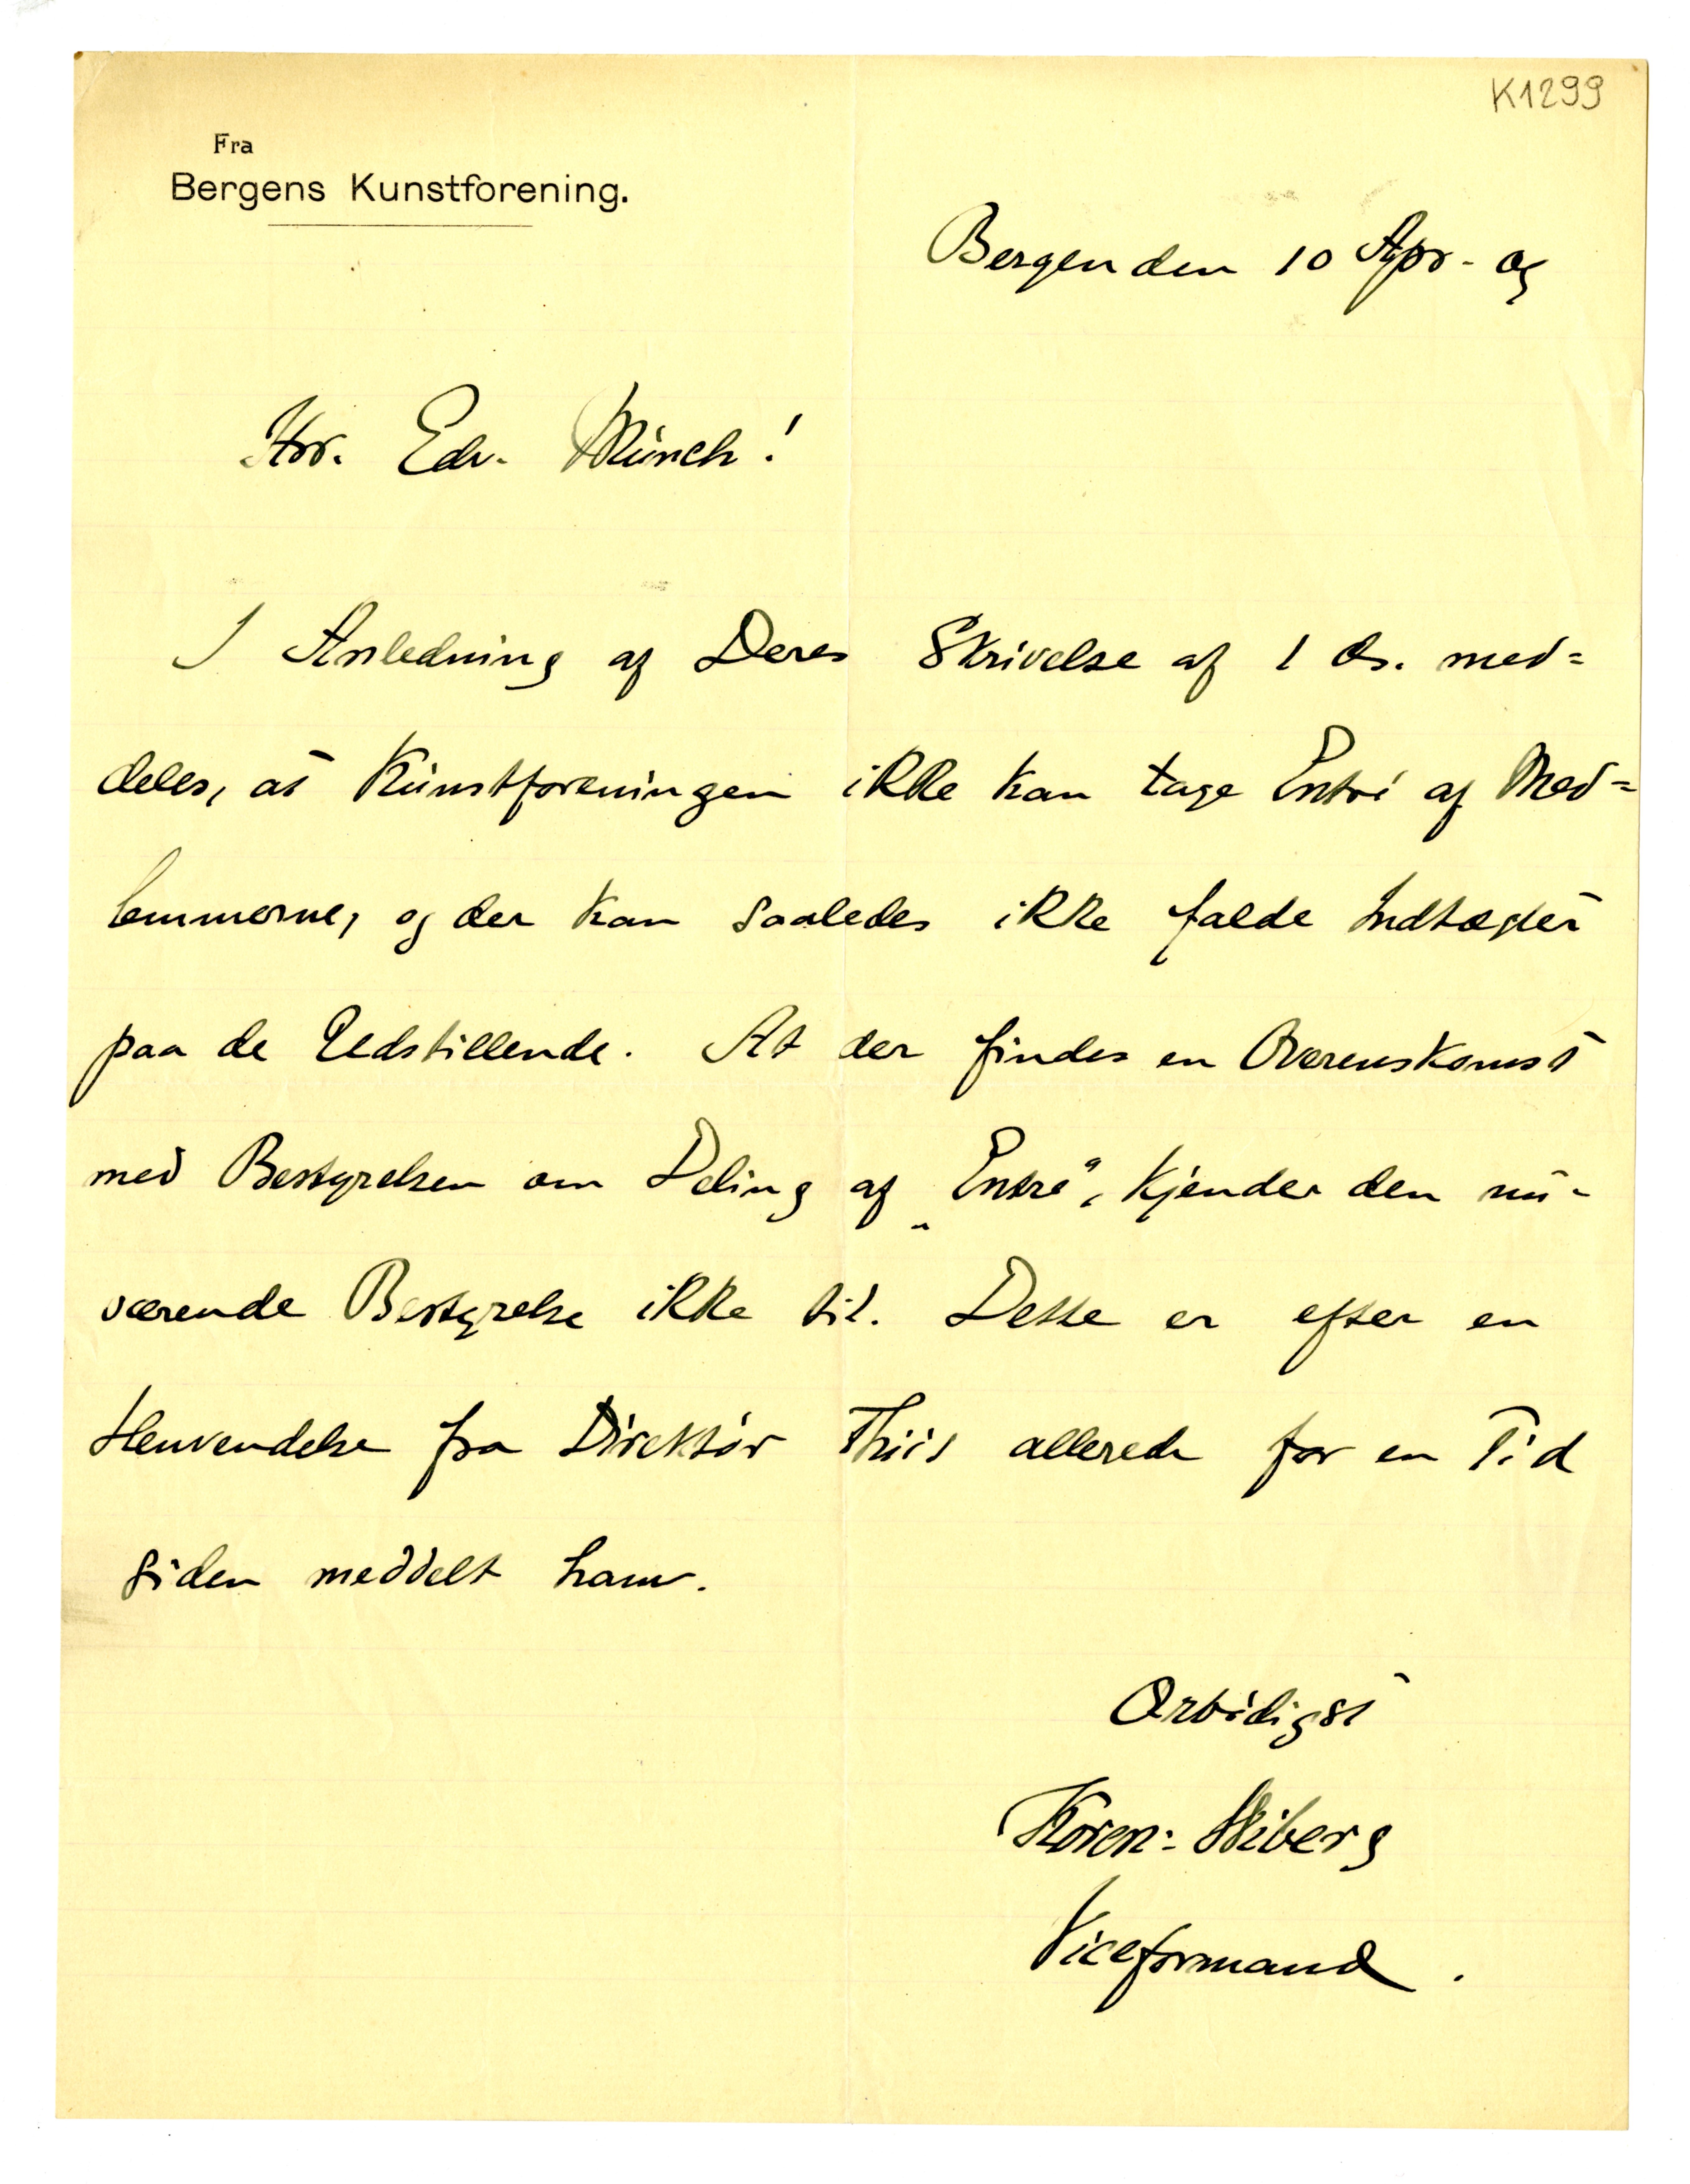 K1299
Fra
Bergens Kunstforening.
Bergen den 10 Apr. 09
Hrr. Edv. Munch!
I Anledning af Deres Skrivelse af 1 ds. med=
deles, at Kunstforeningen ikke kan tage Entré af Med=
lemmerne, og der kan saaledes ikke falde Indtægter
paa de Udstillende. At der findes en Overenskomst
med Bestyrelsen om Deling af „Entré“, kjender den nu-
værende Bestyrelse ikke til. Dette er efter en
Henvendelse fra Direktør Thiis allerede for en Tid
siden meddelt ham.
Ærbødigst
Koren-Wiberg
Viceformand.